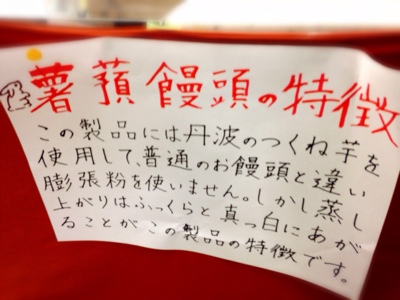 薯蕷饅頭の特徴
この製品には丹波のつくね芋を
使用して、普通のお饅頭と違い
膨張粉を使いません。しかし蒸し
上がりはふっくらと真っ白にあが
ることがこの製品の特徴です。